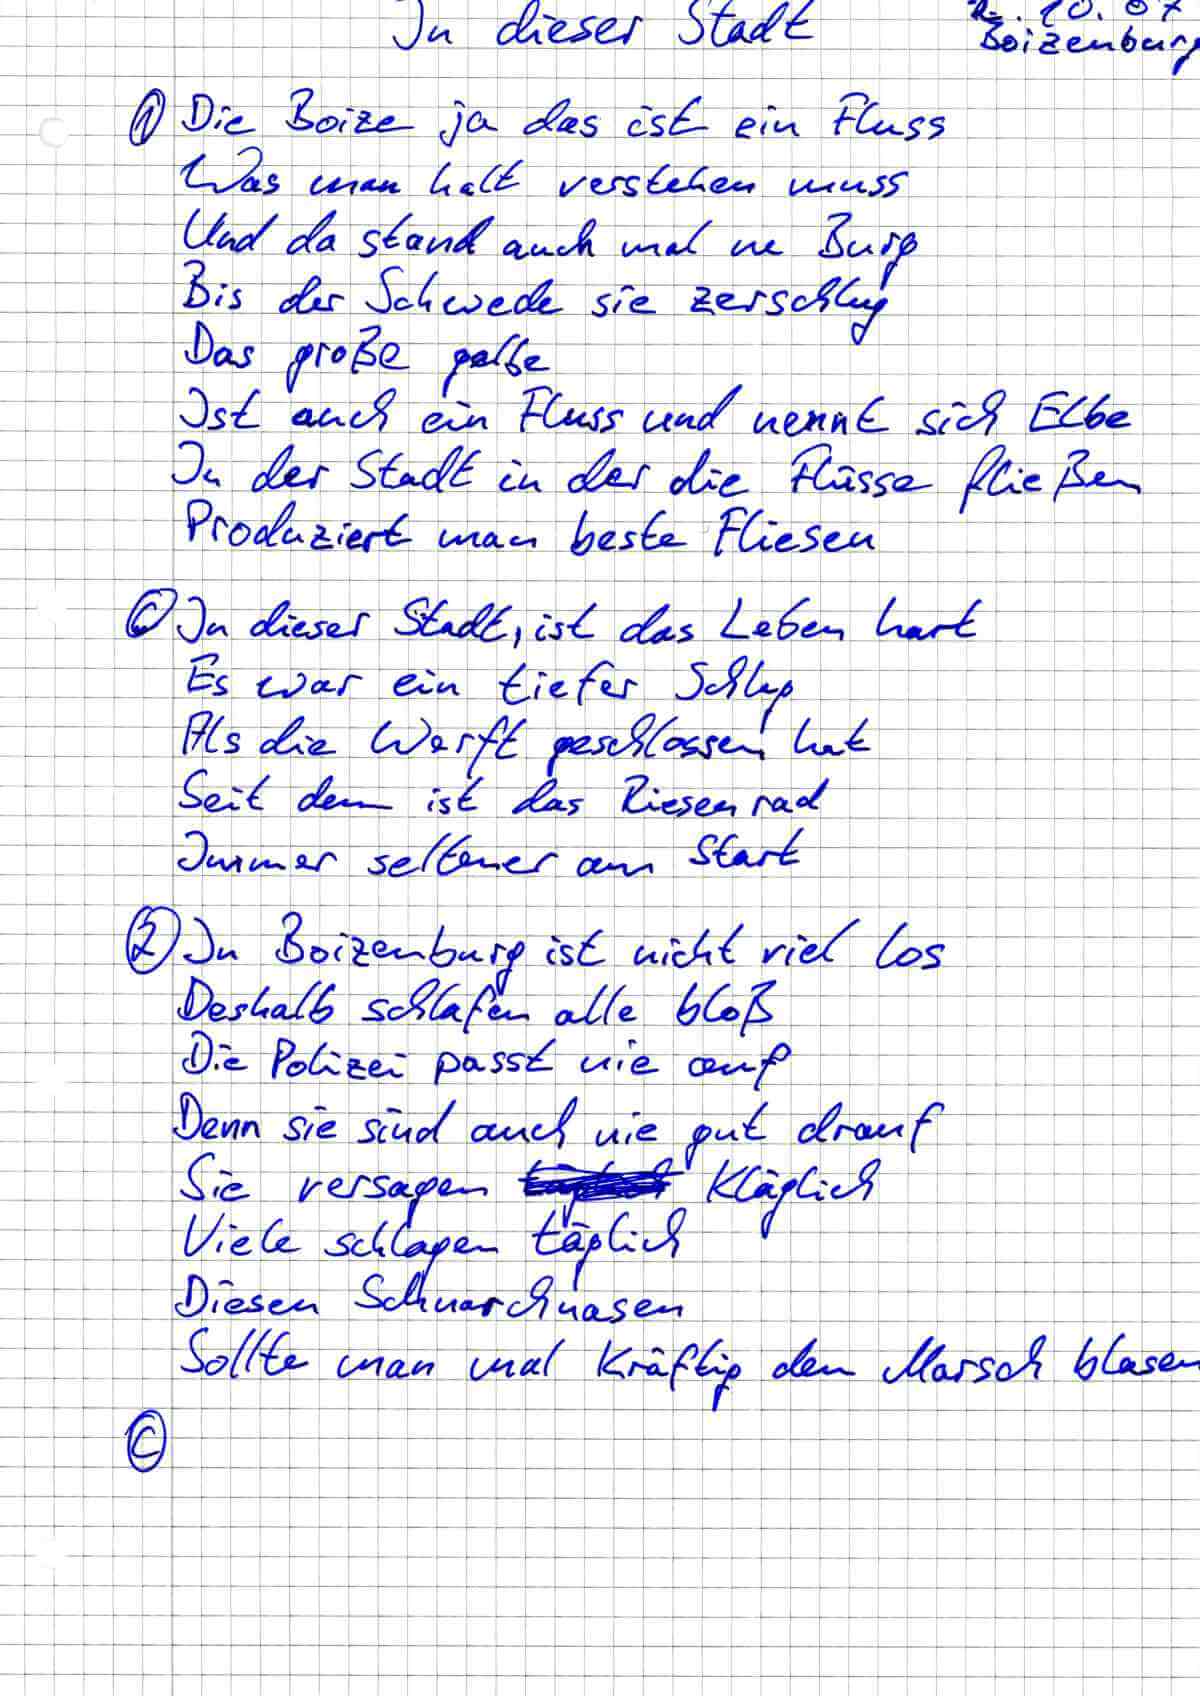 In dieser Stadt
.10.07
Boizenburg
① Die Boize ja das ist ein Fluss
Was man halt verstehen muss
Und da stand auch mal ne Burg
Bis der Schwede sie zerschlug
Das große gelbe
Ist auch ein Fluss und nennt sich Elbe
In der Stadt in der die Flüsse fließen
Produziert man beste Fliesen
Ⓒ In dieser Stadt, ist das Leben hart
Es war ein tiefer Schlag
Als die Werft geschlossen hat
Seit dem ist das Riesenrad
Immer seltener am Start
② In Boizenburg ist nicht viel los
Deshalb schlafen alle bloß
Die Polizei passt nie auf
Denn sie sind auch nie gut drauf
Sie versagen Kläglich
Viele schlagen täglich
Diesen Schnarchnasen
Sollte man mal Kräftig den Marsch blasen
Ⓒ